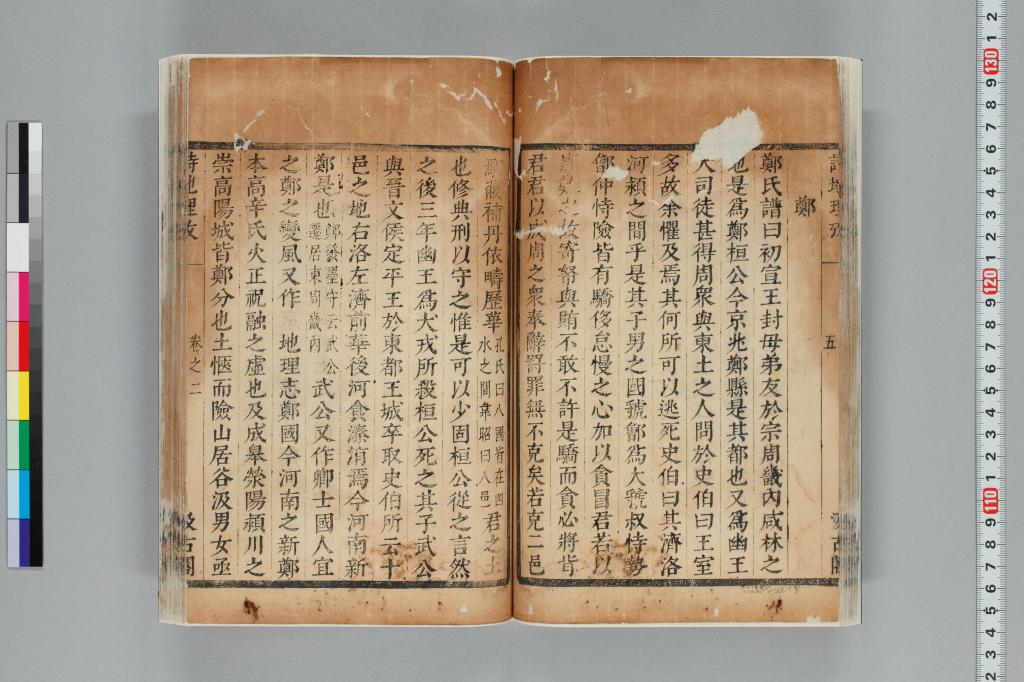 詩地理攷
五
汲古閣
鄭
鄭氏譜曰初宣王封母弟友於宗周畿內咸林之
地是爲鄭桓公今京兆鄭縣是其都也又爲幽王
大司徒甚得周衆與東土之人問於史伯曰王室
多故余懼及焉其何所可以逃死史伯曰其濟洛
河潁之間乎是其子男之國虢鄶爲大虢叔恃勢
鄶仲恃險皆有驕侈怠慢之心加以貪冒君若以
之故寄帑與賄不敢不許是驕而貪必將背
君君以成周之衆奉辭罰罪無不克矣若克二邑
鄢蔽補丹依疇歷華孔氏曰八國皆在四水之間韋昭曰八邑君之土
也修典刑以守之惟是可以少固桓公從之言然
之後三年幽王爲犬戎所殺桓公死之其子武公
與晉文侯定平王於東都王城卒取史伯所云十
邑之地右洛左濟前華後河食溱洧焉今河南新
鄭是也遷居東周畿內武公又作卿士國人宜
之鄭之變風又作 地理志鄭國今河南之新鄭
本高辛氏火正祝融之虛也及成皋滎陽潁川之
崇高陽城皆鄭分也土陿而險山居谷汲男女亟
詩地理攷
卷之二
汲古閣
12
130
9
8
7
6
5
4
3
2
1
120
9
8
7
6
5
4
3
2
1
110
9
8
7
6
5
4
3
2